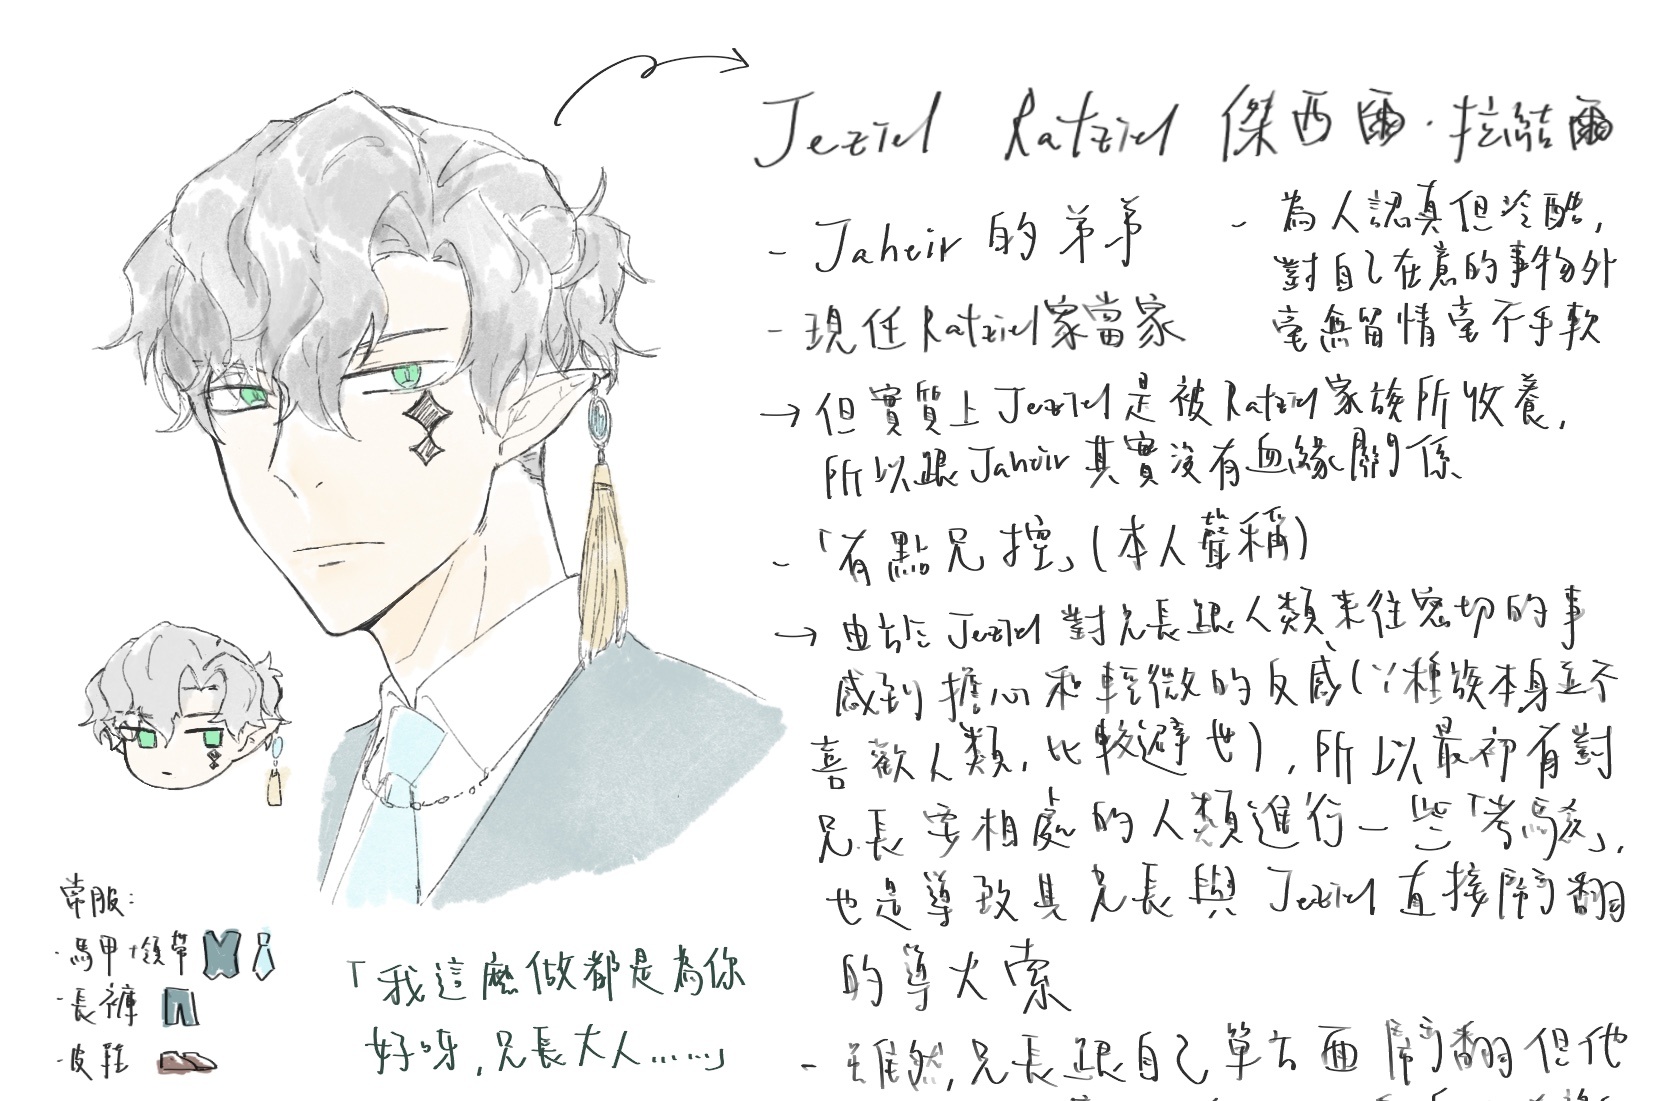 Jeziel Ratziel 傑西爾·拉結爾
- Jaheir 的弟弟
- 現任Ratziel家當家
- 為人認真但冷酷,
對自己在意的事物外
毫無留情毫不手軟
→ 但實質上Jeziel是被Ratziel家族所收養,
所以跟Jaheir其實沒有血緣關係
- 「有點兄控」(本人聲稱)
→ 由於Jeziel對兄長跟人類來往密切的事
感到擔心和輕微的反感(∵種族本身並不
喜歡人類,比較避世),所以最初有對
兄長要相處的人類進行一些「考驗」,
也是導致其兄長與Jeziel直接鬧翻
的導火索
- 雖然,兄長跟自己單方面鬧翻但他
「我這麼做都是為你
好呀,兄長大人......」
常服:
·馬甲+領帶
·長褲
·皮鞋